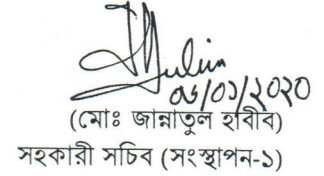 ০৬/০১/২০২০
(মোঃ জান্নাতুল হাবীব)
সহকারী সচিব (সংস্থাপন-১)